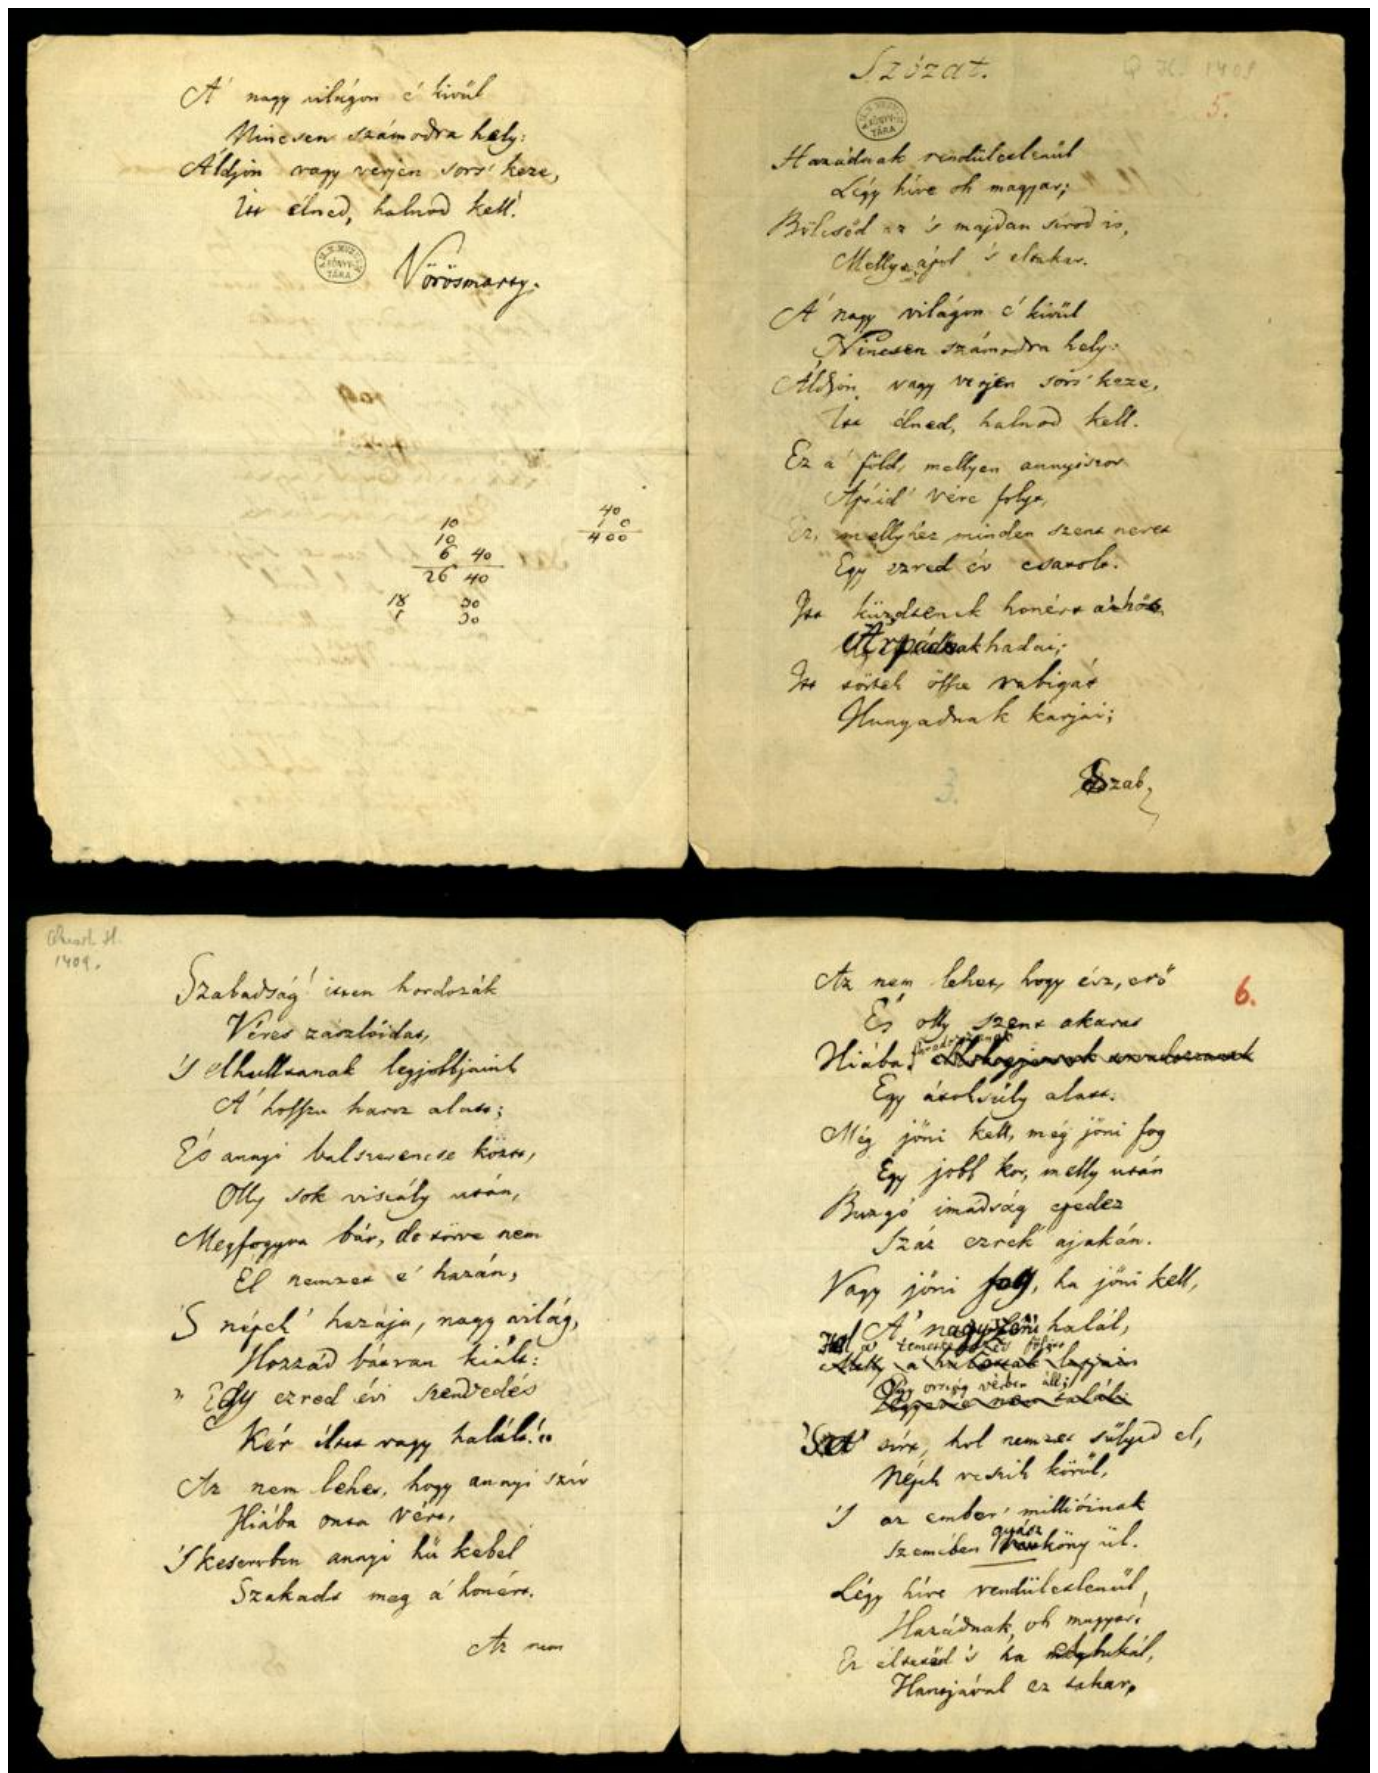 A' nagy világon e' kivűl
Nincsen számodra hely:
Áldjon vagy verjen sors' keze,
Itt élned, halnod kell!
Vörösmarty.
10
10
6 40
26 40
18 30
30
40
10
400
Szózat.
Q H. 1409
5.
Hazádnak rendűletlenűl
Légy híve oh magyar;
Bölcsőd az 's majdan sírod is,
Melly ápol 's eltakar.
A' nagy világon e' kivűl
Nincsen számodra hely:
Áldjon vagy verjen sors' keze,
Itt élned, halnod kell.
Ez a' föld, mellyen annyiszor
Apáid' vére folyt,
Ez, mellyhez minden szent nevet
Egy ezred év csatolt.
Itt küzdtenek honért a' hős
Árpádnak hadai;
Itt törtek össze rabigát
Hunyadnak karjai;
3.
Szab
Quart. H.
1409.
Szabadság! itten hordozák
Véres zászlóidat,
'S elhulltanak legjobbjaink
A' hosszu harcz alatt;
És annyi balszerencse közt,
Olly sok viszály után,
Megfogyva bár, de törve nem
Él nemzet e' hazán,
'S népek' hazája, nagy világ,
Hozzád bátran kiált:
„Egy ezred évi szenvedés
Kér éltet vagy halált!"
Az nem lehet, hogy annyi szív
Hiába onta vért,
'S keservben annyi hű kebel
Szakadt meg a' honért.
Az nem
Az nem lehet, hogy ész, erő
6.
És olly szent akarat
Hiába
Egy átoksúly alatt.
Még jőni kell, még jőni fog
Egy jobb kor, melly után
Buzgó imádság epedez
Száz ezrek' ajakán.
Vagy jőni fog, ha jőni kell,
A' nagyszerű halál,
Hol a' temetkezés fölött
Egy ország vérben áll;
'S a' sírt, hol nemzet sűlyed el,
Népek veszik körűl,
'S az ember' millióinak
gyász
Szemében köny űl.
Légy híve rendűletlenűl,
Hazádnak, oh magyar;
Ez éltetőd 's ha elbukál,
Hantjával ez takar,